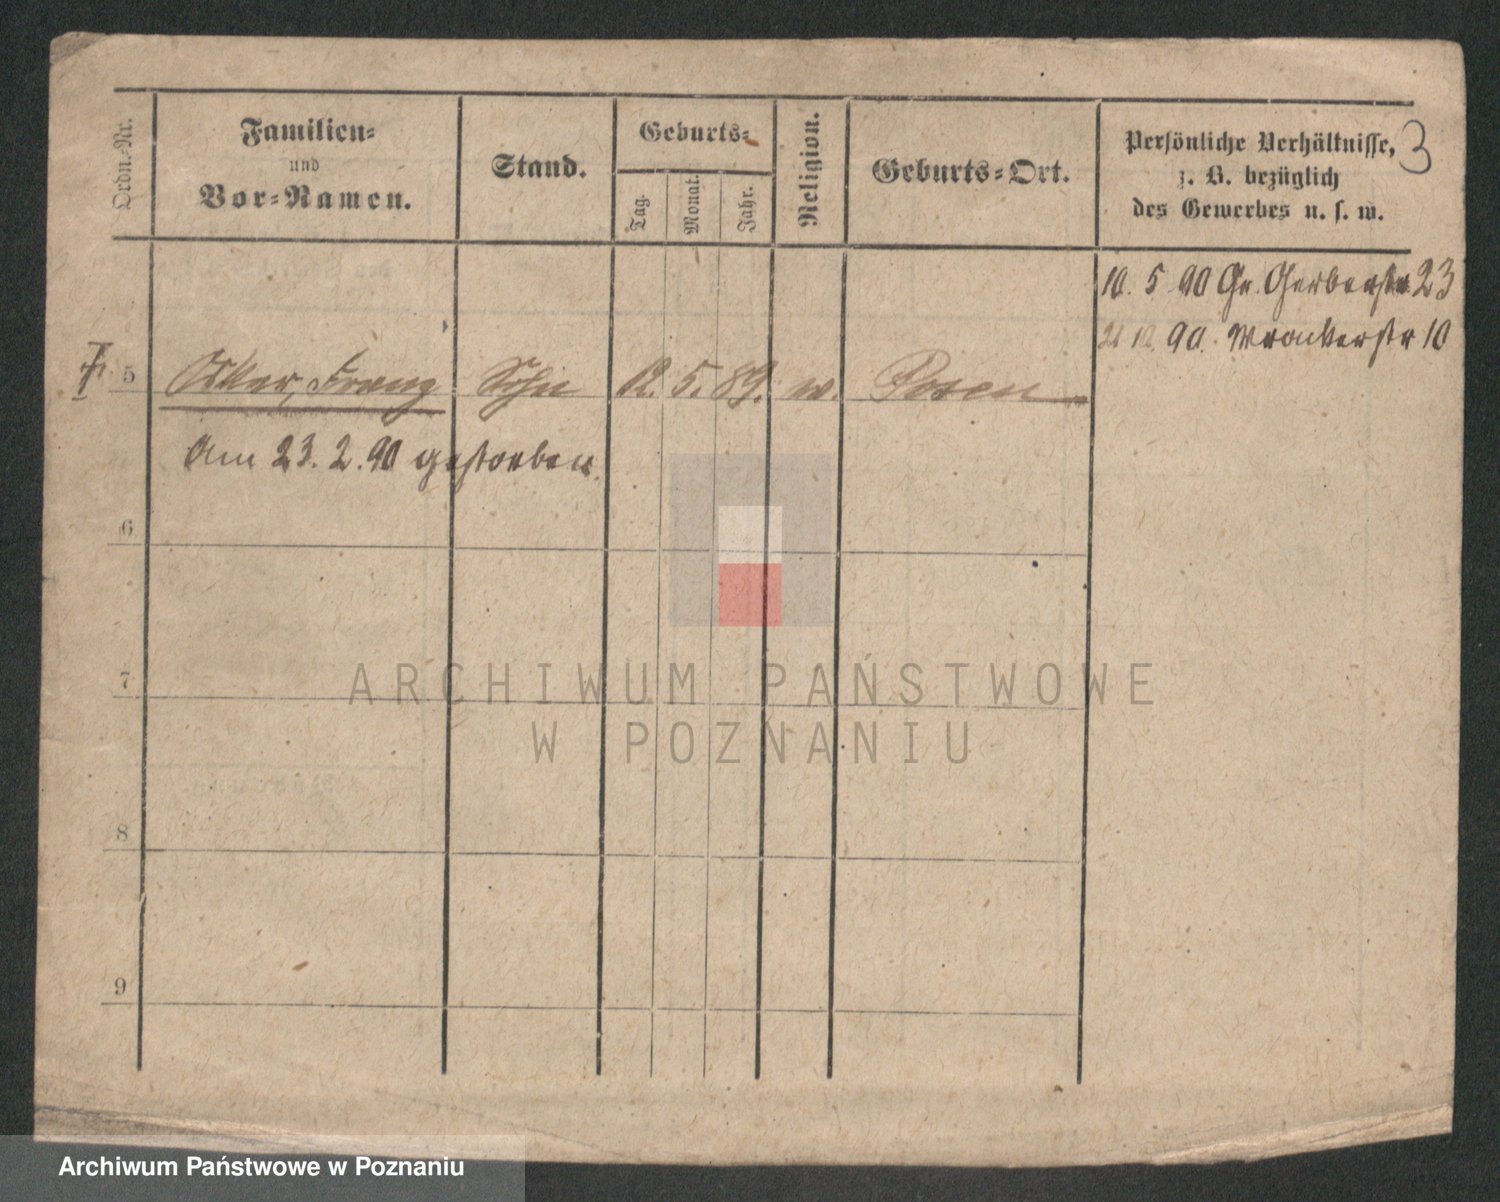 Ordn.-Nr.
Familien-
und
Vor-Namen.
Stand.
Geburts-
Tag.
Monat.
Jahr.
Religion.
Geburts-Ort.
Persönliche Verhältnisse,
z. B. bezüglich
des Gewerbes u. s. w.
3
10. 5 90 Gr. Gerberstr 23
90. Wronkerstr 10
5 Franz Sohn 12. 5. 89. Posen
Am 23. 2. 90 gestorben
6
7
8
9
ARCHIWUM PAŃSTWOWE
W POZNANIU
Archiwum Państwowe w Poznaniu